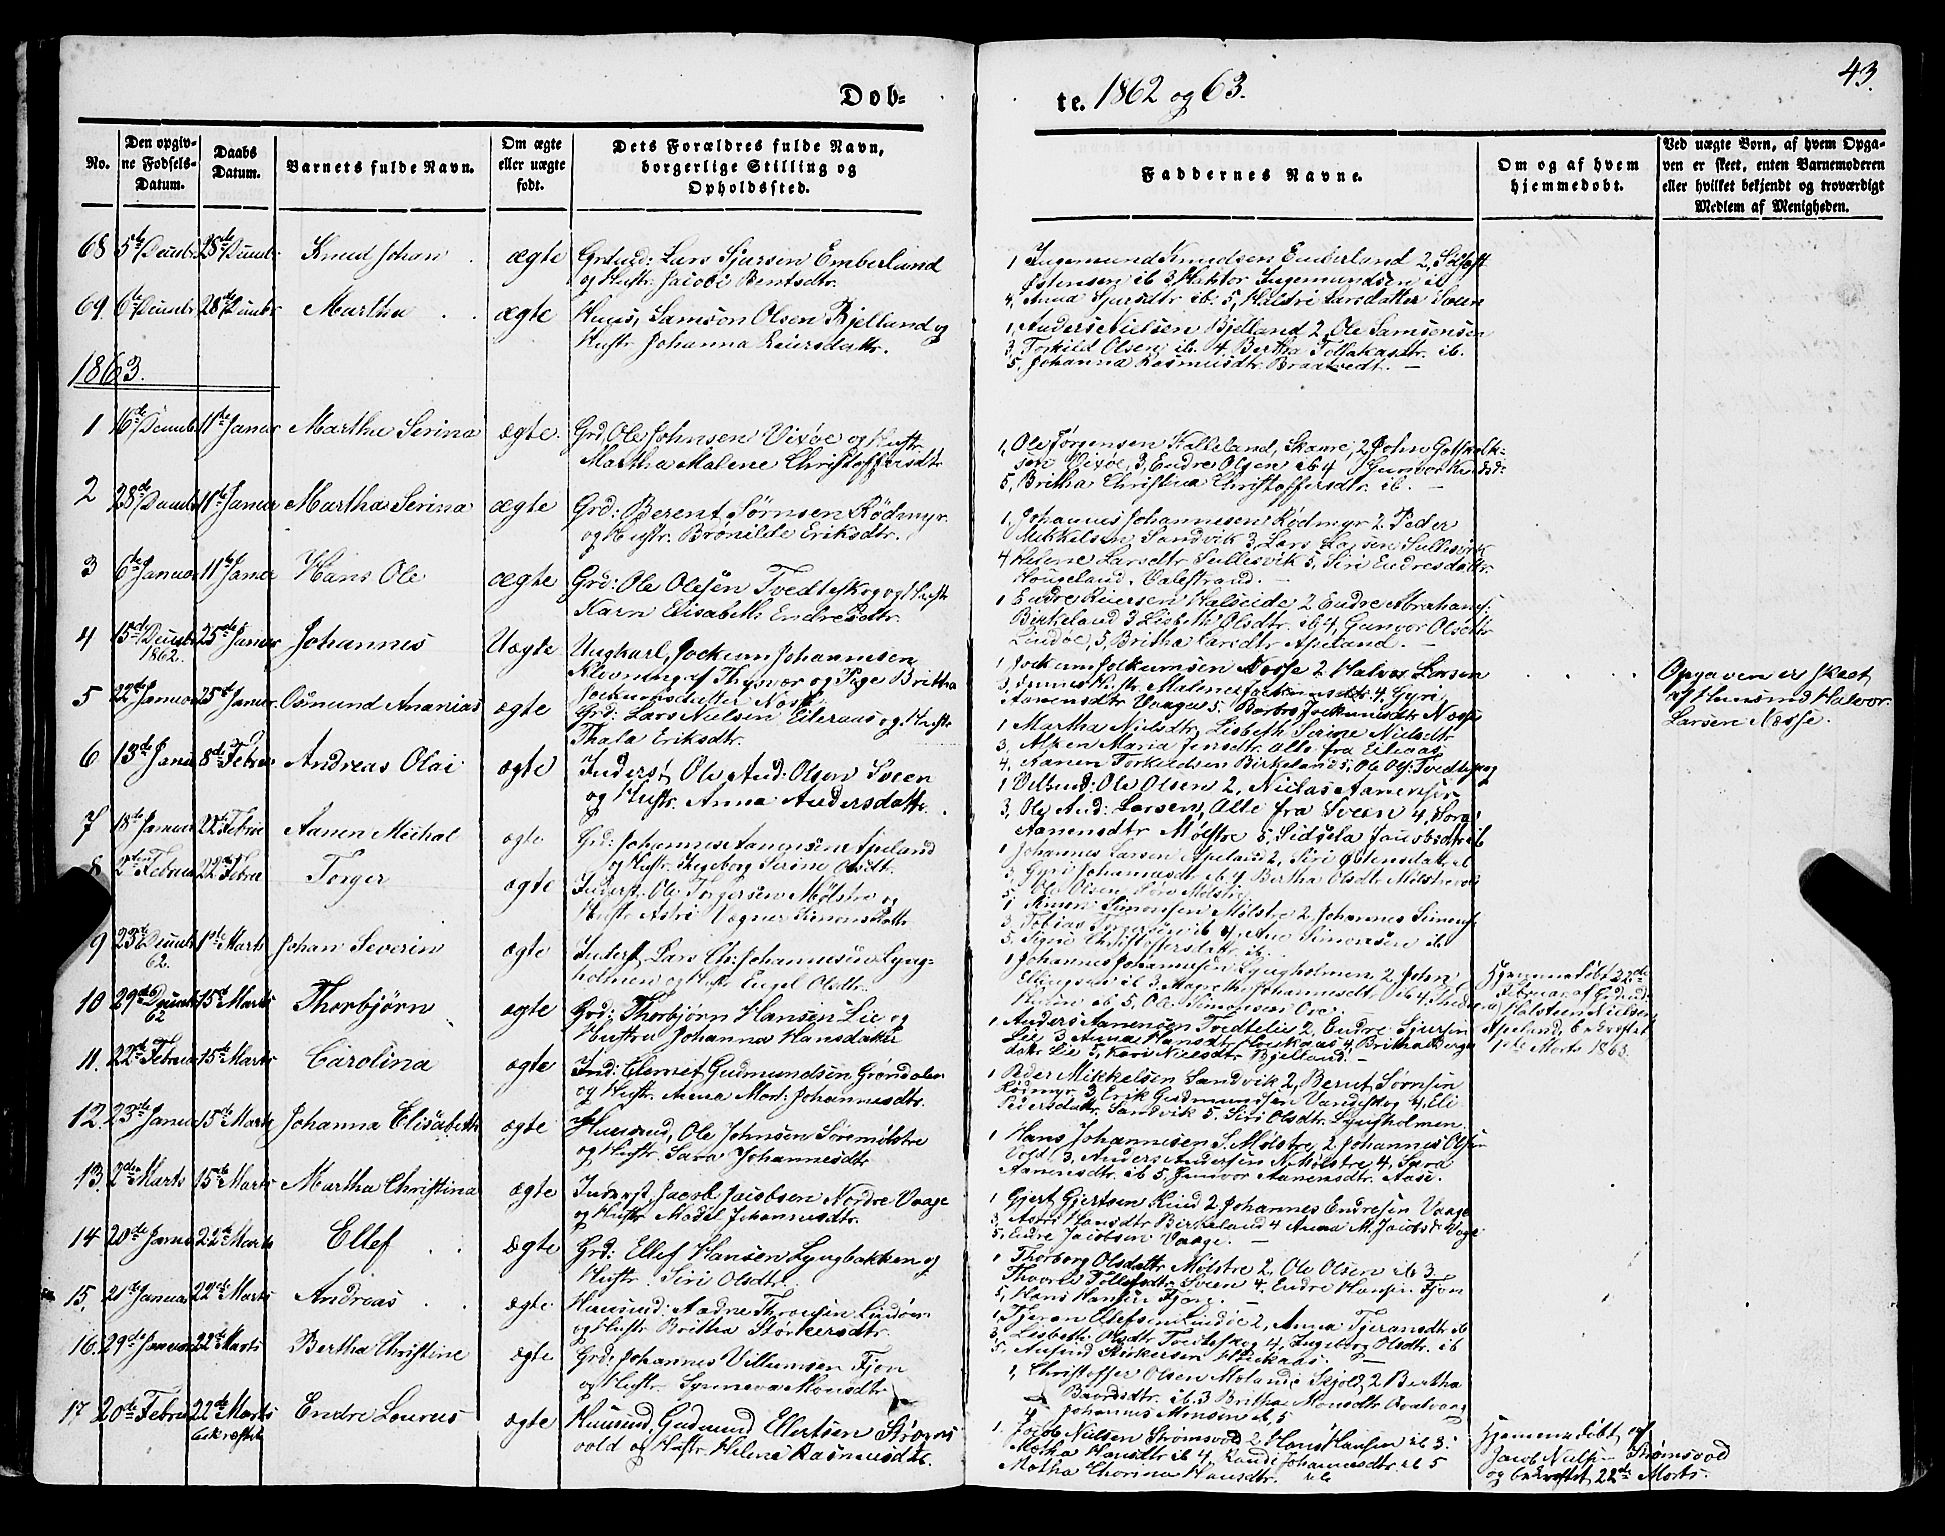 Dob-
te. 1862 og 63.
43.
No.
Den opgiv-
ne Fødsels-
Datum.
Daabs
Datum.
Barnets fulde Navn.
Om ægte
eller uægte
født.
Dets Forældres fulde Navn,
borgerlige Stilling og
Opholdssted.
Faddernes Navne.
Om og af hvem
hjemmedøbt.
Ved uægte Børn, af hvem Opga-
ven er skeet, enten Barnemoderen
eller hvilket bekjendt og troværdigt
Medlem af Menigheden.
68 5te Decmbr 28de Decmbr Knud Johan ægte Lars Sjursen Emberland
og Hustr. Jacobi Berntsdtr.
1 Ingemund Knudsen Emberland 2,
Østensen ib 3, Ingemundsen ib
4, Anna Sjursdtr ib. 5, Larsdatter Sveen
69. 6te Decmbr 28de Decmbr Martha ægte Huus, Samson Olsen Bjelland og
Hustr Johanna Reiersdattr.
1, Anders Nielsen Bjelland 2, Ole Samsonsen
3, Torkild Olsen ib. 4, Bertha ib.
5, Johanna Rasmusdtr Braatvedt.
1863.
1 16de Decmbr 11te Januar Martha Serina ægte. Grd, Ole Johnsen Vixøe og Hustr
Martha Malene Christoffersdtr
1, Ole Jørgensen Kalleland, Skaare, 2, John Gotskalk-
sen Vixøe, 3, Endre Olsen ib 4 Gunvor
5, Britha Christina Christoffersdtr. ib.
2 28de Decmbr 11te Januar Martha Serina ægte Grd: Berent Sørnsen Rødmyr
og Hustr. Brønilde Eriksdtr.
1, Johannes Johannesen Rødmyr 2 Peder
Mikkelsen Sandvik 3, Lars Larsen
4 Helene Larsdtr 5, Siri Endresdattr.
Hougeland, Valestrand.
3 6te Januar 11te Januar Hans Ole ægte Grd: Ole Olesen Tvedteskog og Hustr
Karn Elisabeth Endresdtr.
1 Endre Reiersen Halseide 2 Endre Abrahams.
Birkeland 3 Lisbeth Olsdtr. ib 4, Gunvor Olsdtr
Lindøe, 5, Britha Larsdtr Apeland.
4 15de Decmbr 1862. 25de Januar Johannes Uægte Ungkarl, Jockum Johannesen
Klevning af Thysvær og Pige Britha
Jockumsdatter Nosse.
1 Jockum Jockumsen Nosse 2 Halvor Larsen
3, Hustr. Malene 4, Gyri
Aanensdtr Vaaga 5, Barbro Jockumsdtr Nosse
Opgaven er skeet
af Huusmd Halvor
Larsen Næsse.
5 22de Januar 25de Januar Osmund Ananias ægte Grd: Lars Nielsen Eileraas og Hustr
Thala Eriksdtr.
1 Martha Nielsdtr, Lisbeth Serine Nielsdtr
3, Maria Jensdtr. alle fra Eileraas
4, Aanen Torkildsen Birkeland 5, Ole Ols: Tvedteskog
6 13de Janu 8de Febru Andreas Olai ægte Inderst Ole And: Olsen Sveen
og Hustr. Anna Andersdattr.
1 Ole Olsen 2, Niclas Aanensen
3, Ole And: Larsen, Alle fra Sveen 4,
Aanensdtr Mølstre 5, Sidsela Jacobsdtr ib
7 18de Januar 22de Febru Aanen Michal ægte Grd: Johannes Aanensen Apeland
og Hustr. Ingeborg Serine Olsdtr.
1 Johannes Larsen Apeland 2, Siri Østensdattr ib
3, Gyri Johannesdtr ib, 4 Bertha Olsdtr Mølstre
5 Ole Olsen Mølstre
8 2den Februar 22de Febru Torger ægte Inderst. Ole Torgersen Mølstre og
Hustr. Astri Simonsdattr
1 Simon Simonsen Mølstre 2 Johannes Simons.
3, Tobias Torgersen ib 4, Simonsen ib
5, Signi Christoffersdtr. ib.
9 25de Decmbr 62. 1ste Marts Johan Severin ægte Inderst Lars Ch: Johannesen Lyng-
holmen og Hustr Engel Olsdtr.
1 Johannes Johannesen Lyngholmen 2, John
Ellingsen ib 3 Magrethe Johannesdtr ib 4,
ib 5, Ole Simonsen
Hjemmedøbt 22de
Februar af
Halsten Nielsen
Apeland, bekræftet
1ste Marts 1863.
10 29de Decmbr 62 15de Marts Thorbjørn ægte Grd: Thorbjørn Hansen Lie og
Hustru Johanna Hansdatter
1 Anders Aanensen Tvedtelie 2, Endre Sjursen
Lie 3, Anna Hansdtr Houkaas 4, Britha
Lie 5, Kari Nielsdtr Bjelland.
11. 22de Februar 15de Marts Carolina ægte Ind: Clemet Gudmundsen
og Hustr. Anna Mart: Johannesdtr.
1 Peder Mikkelsen Sandvik 2, Bernt Sørnsen
Rødmyr 3, Erik Gudmundsen Vandeskog 4, Eli
Pedersdattr. Sandvik 5. Siri Olsdtr. Lyngholmen.
12. 23de Januar 15de Marts Johanna Elisabeth ægte Huusmd, Ole Johnsen Søremølstre
og Hustr. Sara Johannesdtr
1 Hans Johannesen S. Mølstre, 2 Johannes Olsen
Vold, 3, Anders Andersen N. Mølstre 4, Sara
Aanensdtr. ib 5, Gunvor Aanensdtr. Aase.
13. 2den Marts 15de Marts Martha Christina ægte Inderst, Jacob Jacobsen Nordre Vaage
og Hustr. Madel Johannesdtr.
1 Gjert Gjertsen 2, Johannes Endresen Vaage
3, Astri Hansdtr Birkeland 4 Anna M. Jacobsdtr Vage
5, Endre Jacobsen Vaage.
14 20de Janua 22de Marts Ellef ægte Grd: Ellef Hansen Lyngbakken og
Hustr. Siri Olsdtr.
1 Thorborg Olsdattr Mølstre 2, Ole Olsen ib 3
Tollefsdtr Sveen 4, Endre Hansen Fjon
5, Hans Hansen Fjon.
15, 21de Januar 22de Marts Andreas ægte Huusmd: Aadne Lindøe
og Hustr Britha Størkersdtr.
1, Tjeran Olefsen Lindøe 2, Anna Tjeransdtr ib
3, Lisbeth Olsdtr Tvedteskog 4, Ingeborg Olsdtr. ib
5, Størkersen Houkaas.
16. 29de Januar 22de Marts Bertha Christine ægte Grd, Johannes Villumsen Fjon
og Hustr. Synneva Monsdtr
1, Christoffer Olsen Molande Skjold, 2 Bertha
Baardsdtr. ib. 3 Britha Monsdtr
4 Johannes Monsen ib, 5
17 20de Februar 22de Marts bekræftet Endre Lourus ægte Huusmd, Gudmund Ellertsen Strøms
vold og Hustr. Helene Rasmusdtr.
1. Jacob Nielsen Strømsvold 2 Hans Hansen ib 3.
Martha Hansdtr ib 4, Randi Johannesdtr. ib 5
Martha Thorina Hansdtr. ib
Hjemmedøbt af
Jacob Niels. Strømsvold
og bekræftet 22de Marts.